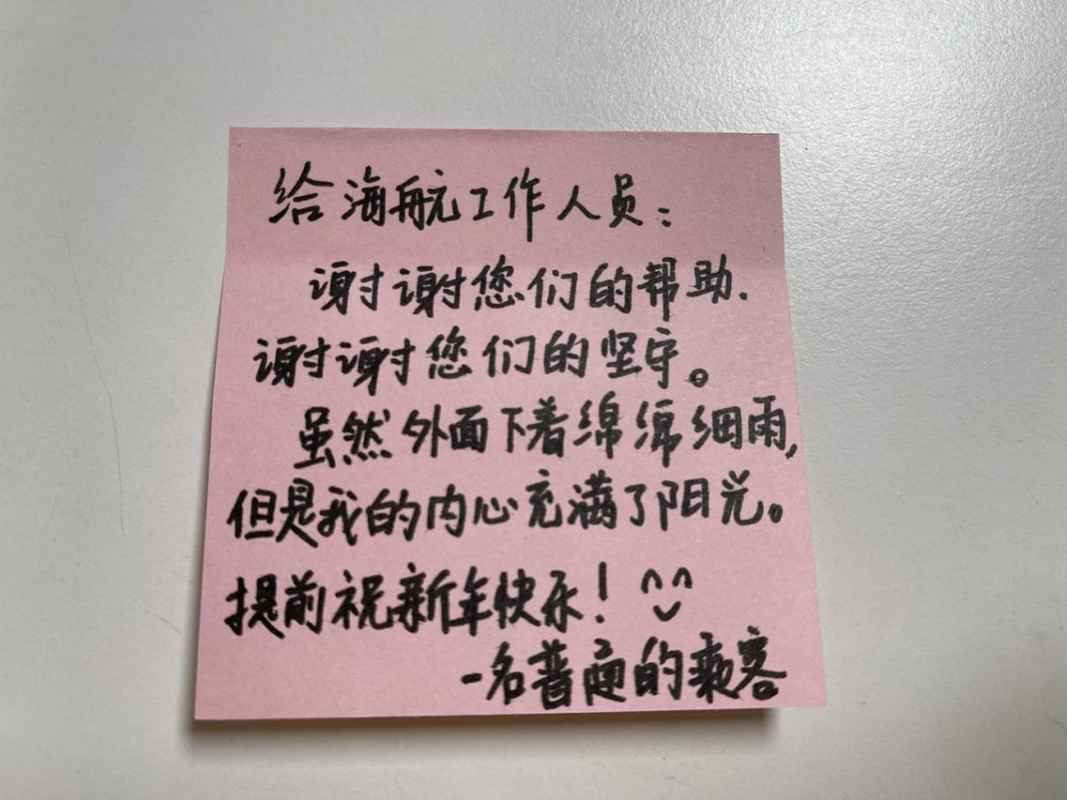 给海航工作人员：
谢谢您们的帮助.
谢谢您们的坚守。
虽然外面下着绵绵细雨,
但是我的内心充满了阳光。
提前祝新年快乐! ^_^
一名普通的乘客